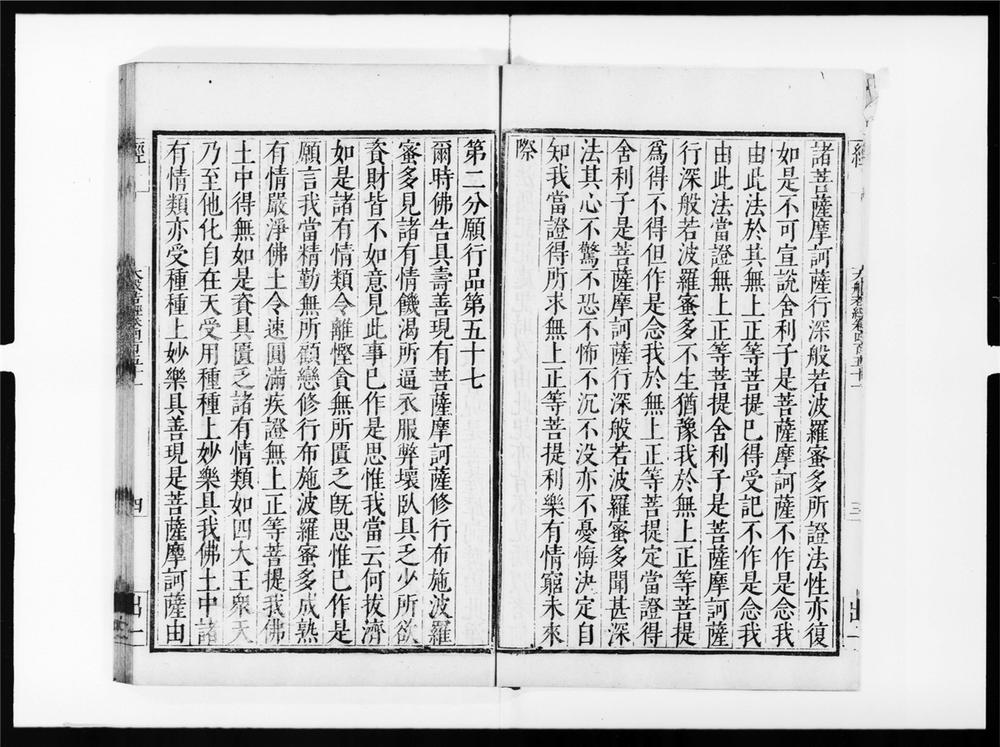 諸菩薩摩訶薩行深般若波羅蜜多所證法性亦復
如是不可宣說舍利子是菩薩摩訶薩不作是念我
由此法於其無上正等菩提已得受記不作是念我
由此法當證無上正等菩提舍利子是菩薩摩訶薩
行深般若波羅蜜多不生猶豫我於無上正等菩提
爲得不得但作是念我於無上正等菩提定當證得
舍利子是菩薩摩訶薩行深般若波羅蜜多聞甚深
法其心不驚不恐不怖不沉不没亦不憂悔決定自
知我當證得所求無上正等菩提利樂有情窮未來
際
第二分願行品第五十七
爾時佛告具壽善現有菩薩摩訶薩修行布施波羅
蜜多見諸有情饑渴所逼衣服弊壞臥具乏少所欲
資財皆不如意見此事已作是思惟我當云何拔濟
如是諸有情類令離慳貪無所匱乏旣思惟已作是
願言我當精勤無所顧戀修行布施波羅蜜多成熟
有情嚴淨佛土令速圓滿疾證無上正等菩提我佛
土中得無如是資具匱乏諸有情類如四大王衆天
乃至他化自在天受用種種上妙樂具我佛土中諸
有情類亦受種種上妙樂具善現是菩薩摩訶薩由